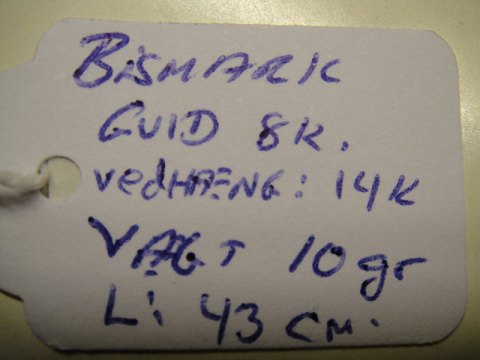 BISMARK
GULD 8K.
vedHÆNG: 14K
VÆGT 10 gr
L: 43 cm.